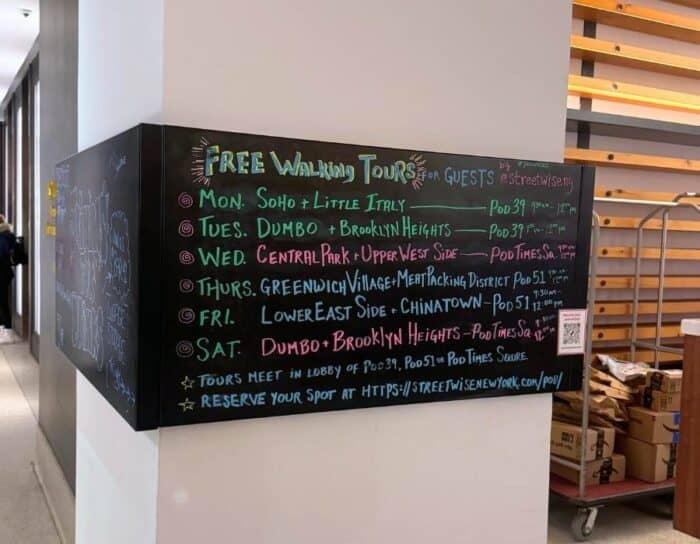 FREE WALKING TOURS FOR GUESTS by @streetwiseny
MON. SOHO + LITTLE ITALY — POD 39
TUES. DUMBO + BROOKLYN HEIGHTS — POD 39
WED. CENTRAL PARK + UPPER WEST SIDE — POD TIMES SQ.
THURS. GREENWICH VILLAGE + MEAT PACKING DISTRICT POD 51
FRI. LOWER EAST SIDE + CHINATOWN — POD 51 9:30AM - 12:00PM
SAT. DUMBO + BROOKLYN HEIGHTS — POD TIMES SQ
TOURS MEET IN LOBBY OF POD 39, POD 51 OR POD TIMES SQUARE.
RESERVE YOUR SPOT AT HTTPS://STREETWISENEWYORK.COM/POD/